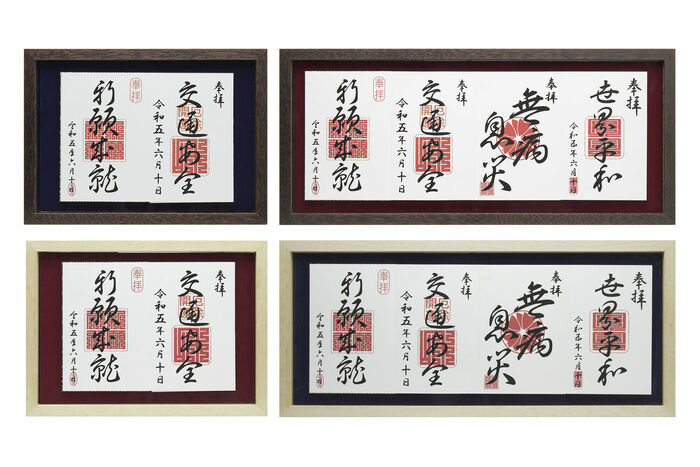 奉拝
交通安全
令和五年六月十日
奉拝
祈願成就
令和五年六月十日
奉拝
世界平和
令和五年六月十日
奉拝
無病
息災
奉拝
交通安全
令和五年六月十日
奉拝
祈願成就
令和五年六月十日
奉拝
交通安全
令和五年六月十日
奉拝
祈願成就
令和五年六月十日
奉拝
世界平和
令和五年六月十日
奉拝
無病
息災
奉拝
交通安全
令和五年六月十日
奉拝
祈願成就
令和五年六月十日